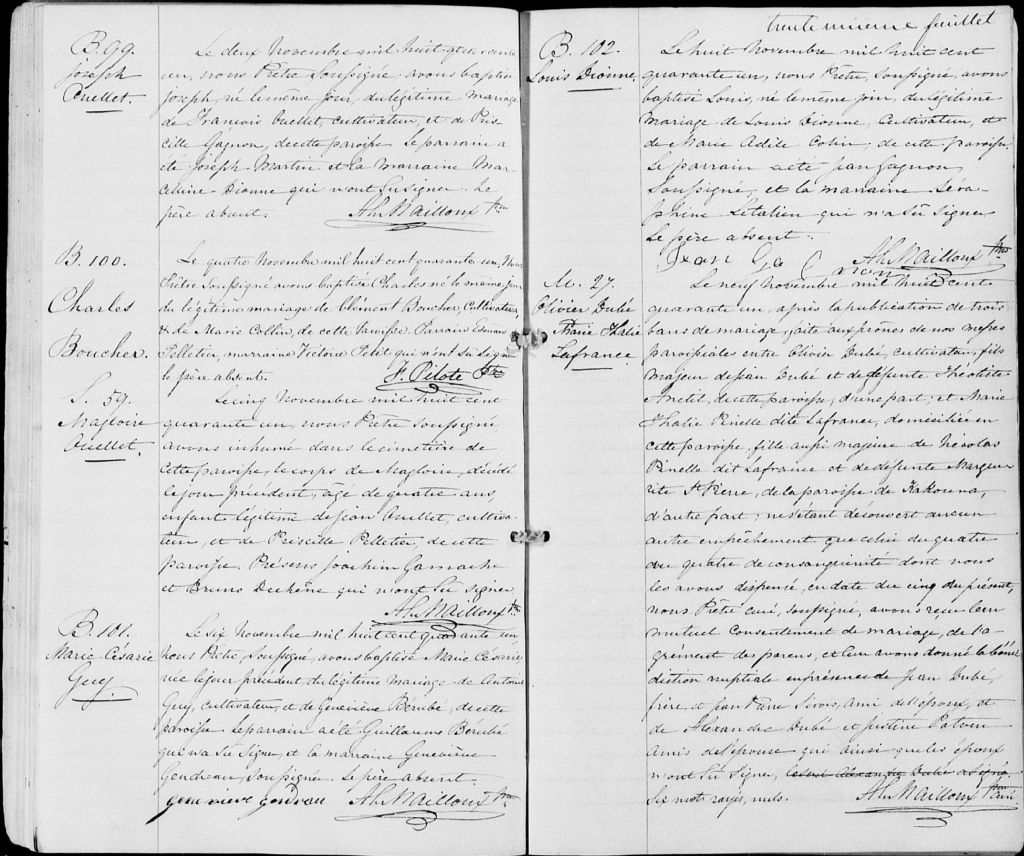 B. 99.
Joseph
Ouellet.
Le deux Novembre mil huit cent quarante
un, nous Prêtre Soussigné, avons baptisé
Joseph, né le même jour, du légitime mariage
de François Ouellet, cultivateur, et de Pris-
cille Gagnon, de cette paroisse. Le parrain a
été Joseph Martin et la marraine Mar-
celline Dionne qui n'ont su signer. Le
père absent. Alx. Mailloux Ptre
B. 100.
Charles
Boucher.
Le quatre Novembre mil huit cent quarante un, Nous
Prêtre Soussigné avons baptisé Charles né le même jour
du légitime mariage de Clément Boucher, Cultivateur,
& de Marie Collin, de cette Paroisse. Parrain Edouard
Pelletier, marraine Victoire Petit qui n'ont su signer
le père absent. F. Pilote Ptre
S. 59.
Magloire
Ouellet.
Le cinq Novembre mil huit cent
quarante un, nous Prêtre soussigné,
avons inhumé dans le cimetière de
cette paroisse, le corps de Magloire, décédé
le jour précédent, âgé de quatre ans,
enfant légitime de Jean Ouellet, cultiva-
teur, et de Priscille Pelletier, de cette
paroisse. Présens Joachim Gamache
et Bruno Duchêne qui n'ont su signer
Alx. Mailloux Ptre
B. 101.
Marie-Césarie
Guy.
Le six Novembre mil huit cent quarante un
nous Prêtre, Soussigné, avons baptisé Marie Césarie,
née le jour précédent du légitime mariage de Antoine
Guy, cultivateur, et de Geneviève Bérubé, de cette
paroisse. Le parrain a été Guillaume Bérubé
qui n'a su signer et la marraine Geneviève
Gendreau, Soussignée. Le père absent.
genevieve gendreau Alx. Mailloux Ptre
trente unième feuillet
B. 102.
Louis Dionne.
Le huit Novembre mil huit cent
quarante un, nous Prêtre, soussigné, avons
baptisé Louis, né le même jour, du légitime
mariage de Louis Dionne, Cultivateur, et
de Marie Adèle Colin, de cette paroisse.
Le parrain a été Jean Gagnon,
soussigné, et la marraine Séra-
phine Letalien qui n'a su signer
Le père absent.
Jean Gagnon Alx. Mailloux Ptre
M. 27.
Olivier Dubé
Marie Thalie
Lafrance.
Le neuf Novembre mil huit cent
quarante un, après la publication de trois
bans de mariage, faite aux prônes de nos messes
paroissiales entre Olivier Dubé, cultivateur, fils
majeur de Jean Dubé et de défunte Théotiste
Anctil, de cette paroisse, d'une part; et Marie
Thalie Pinelle dite Lafrance, domiciliée en
cette paroisse, fille aussi majeure de Nicolas
Pinelle dit Lafrance et de défunte Margue-
rite St Pierre, de la paroisse de Kakouna,
d'autre part; ne s'étant découvert aucun
autre empêchement que celui du quatre
au quatre de consanguinité dont nous
les avons dispensé, en date du cinq du présent,
nous Prêtre curé, soussigné, avons reçu leur
mutuel consentement de mariage, de l'a-
grément des parens, et leur avons donné la béné-
diction nuptiale en présence de Jean Dubé,
frère et Jean Pierre Sirois, ami de l'époux, et
de Alexandre Dubé et Justine Potvin
amis de l'épouse qui ainsi que les époux
n'ont su signer, le seul Alexandre Dubé a signé.
Six mots rayés, nuls. Alx. Mailloux Ptre Curé